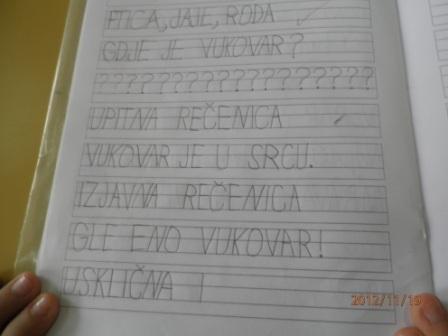 PTICA, JAJE, RODA
GDJE JE VUKOVAR?
??????????????????
UPITNA REČENICA
VUKOVAR JE U SRCU.
IZJAVNA REČENICA
GLE ENO VUKOVAR!
USKLIČNA
2012/11/19